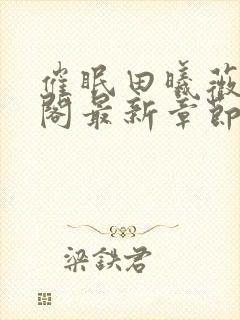 催眠田曦薇
阁最新章節
梁鉄君